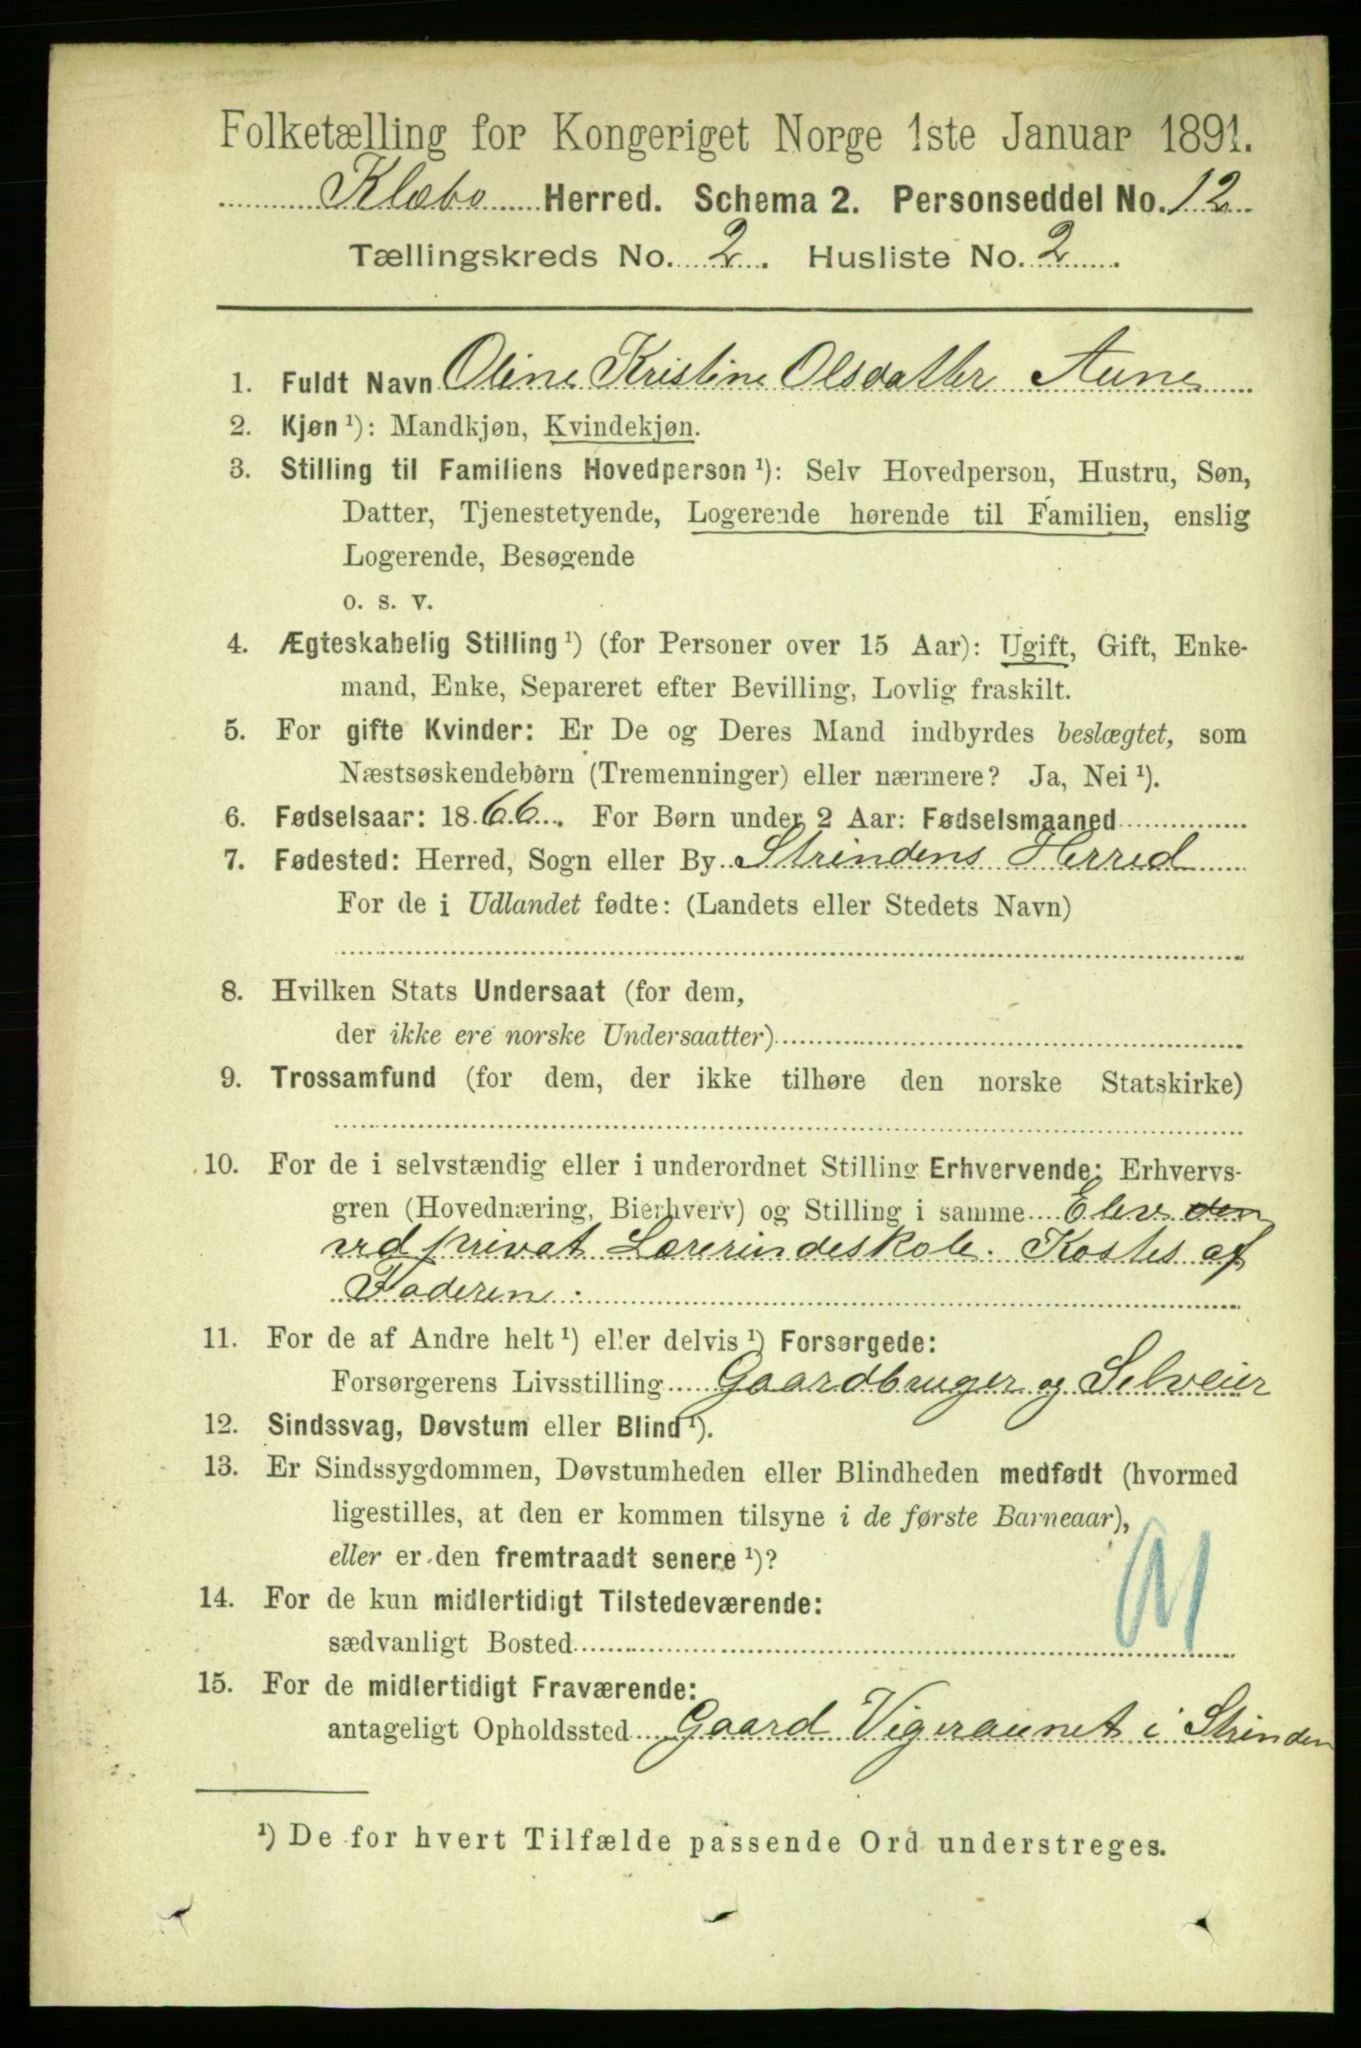 Folketælling for Kongeriget Norge 1ste Januar 1891.
Klæbo Herred. Schema 2. Personseddel No. 12
Tællingskreds No. 2. Husliste No. 2.
1. Fuldt Navn Oline Kristine Olsdatter Aune
2. Kjøn ¹): Mandkjøn, Kvindekjøn.
3. Stilling til Familiens Hovedperson ¹): Selv Hovedperson, Hustru, Søn,
Datter, Tjenestetyende, Logerende hørende til Familien, enslig
Logerende, Besøgende
o. s. v.
4. Ægteskabelig Stilling ¹) (for Personer over 15 Aar): Ugift, Gift, Enke-
mand, Enke, Separeret efter Bevilling, Lovlig fraskilt.
5. For gifte Kvinder: Er De og Deres Mand indbyrdes beslægtet, som
Næstsøskendebørn (Tremenninger) eller nærmere? Ja, Nei ¹).
6. Fødselsaar: 1866. For Børn under 2 Aar: Fødselsmaaned
7. Fødested: Herred, Sogn eller By Strindens Herred
For de i Udlandet fødte: (Landets eller Stedets Navn)
8. Hvilken Stats Undersaat (for dem,
der ikke ere norske Undersaatter)
9. Trossamfund (for dem, der ikke tilhøre den norske Statskirke)
10. For de i selvstændig eller i underordnet Stilling Erhvervende: Erhvervs-
gren (Hovednæring, Bierhverv) og Stilling i samme Elev den
ved privat Lærerindeskole. Kostes af
Faderen.
11. For de af Andre helt ¹) eller delvis ¹) Forsørgede:
Forsørgerens Livsstilling Gaardbruger og Selveier
12. Sindssvag, Døvstum eller Blind ¹).
13. Er Sindssygdommen, Døvstumheden eller Blindheden medfødt (hvormed
ligestilles, at den er kommen tilsyne i de første Barneaar),
eller er den fremtraadt senere ¹)?
14. For de kun midlertidigt Tilstedeværende:
sædvanligt Bosted
15. For de midlertidigt Fraværende:
antageligt Opholdssted Gaard Vigeraunet i Strinden
¹) De for hvert Tilfælde passende Ord understreges.